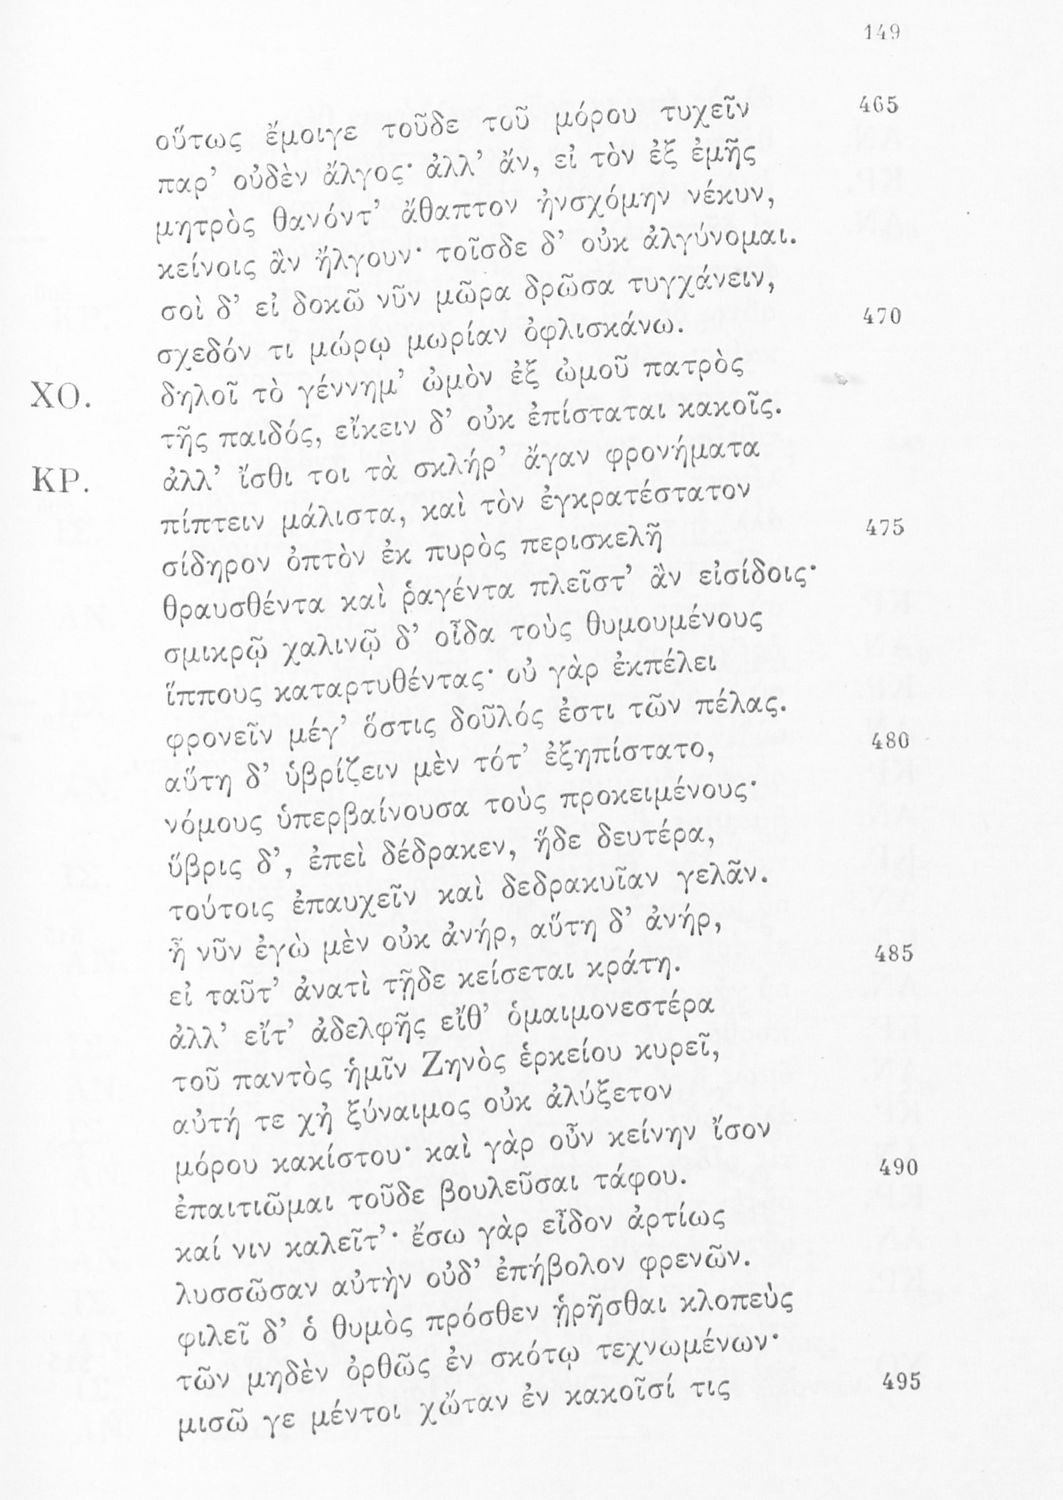 149
οὕτως ἔμοιγε τοῦδε τοῦ μόρου τυχεῖν 465
παρ’ οὐδὲν ἄλγος· ἀλλ’ ἄν, εἰ τὸν ἐξ ἐμῆς
μητρὸς θανόντ’ ἄθαπτον ἠνσχόμην νέκυν,
κείνοις ἂν ἤλγουν· τοῖσδε δ’ οὐκ ἀλγύνομαι.
σοὶ δ’ εἰ δοκῶ νῦν μῶρα δρῶσα τυγχάνειν,
σχεδόν τι μώρῳ μωρίαν ὀφλισκάνω. 470
ΧΟ. δηλοῖ τὸ γέννημ’ ὠμὸν ἐξ ὠμοῦ πατρὸς
τῆς παιδός, εἴκειν δ’ οὐκ ἐπίσταται κακοῖς.
ΚΡ. ἀλλ’ ἴσθι τοι τὰ σκλήρ’ ἄγαν φρονήματα
πίπτειν μάλιστα, καὶ τὸν ἐγκρατέστατον
σίδηρον ὀπτὸν ἐκ πυρὸς περισκελῆ 475
θραυσθέντα καὶ ῥαγέντα πλεῖστ’ ἂν εἰσίδοις·
σμικρῷ χαλινῷ δ’ οἶδα τοὺς θυμουμένους
ἵππους καταρτυθέντας· οὐ γὰρ ἐκπέλει
φρονεῖν μέγ’ ὅστις δοῦλός ἐστι τῶν πέλας.
αὕτη δ’ ὑβρίζειν μὲν τότ’ ἐξηπίστατο, 480
νόμους ὑπερβαίνουσα τοὺς προκειμένους·
ὕβρις δ’, ἐπεὶ δέδρακεν, ἥδε δευτέρα,
τούτοις ἐπαυχεῖν καὶ δεδρακυῖαν γελᾶν.
ἦ νῦν ἐγὼ μὲν οὐκ ἀνήρ, αὕτη δ’ ἀνήρ,
εἰ ταῦτ’ ἀνατὶ τῇδε κείσεται κράτη. 485
ἀλλ’ εἴτ’ ἀδελφῆς εἴθ’ ὁμαιμονεστέρα
τοῦ παντὸς ἡμῖν Ζηνὸς ἑρκείου κυρεῖ,
αὐτή τε χἠ ξύναιμος οὐκ ἀλύξετον
μόρου κακίστου· καὶ γὰρ οὖν κείνην ἴσον
ἐπαιτιῶμαι τοῦδε βουλεῦσαι τάφου. 490
καί νιν καλεῖτ’· ἔσω γὰρ εἶδον ἀρτίως
λυσσῶσαν αὐτὴν οὐδ’ ἐπήβολον φρενῶν.
φιλεῖ δ’ ὁ θυμὸς πρόσθεν ᾑρῆσθαι κλοπεὺς
τῶν μηδὲν ὀρθῶς ἐν σκότῳ τεχνωμένων·
μισῶ γε μέντοι χὤταν ἐν κακοῖσί τις 495